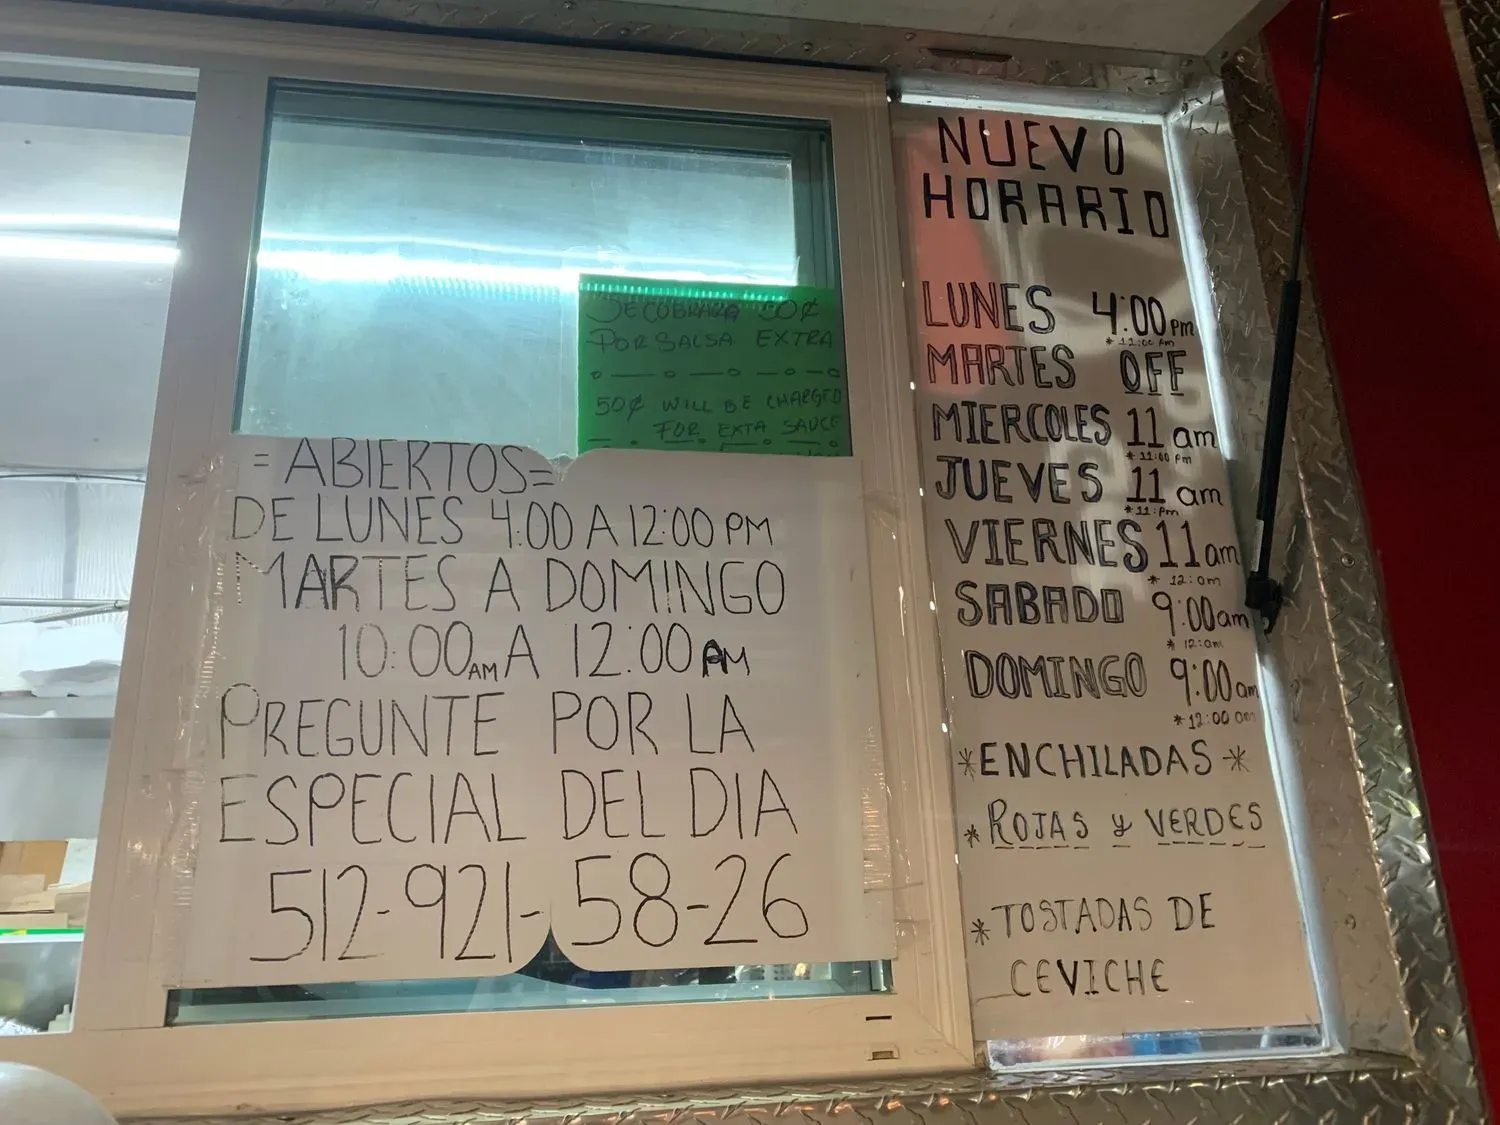 SE COBRARA 50¢
POR SALSA EXTRA
50¢ WILL BE CHARGED
FOR EXTA SAUCE
=ABIERTOS=
DE LUNES 4:00 A 12:00 PM
MARTES A DOMINGO
10:00 AM A 12:00 AM
PREGUNTE POR LA
ESPECIAL DEL DIA
512-921-58-26
NUEVO
HORARIO
LUNES 4:00 pm
* 12:00 Am
MARTES OFF
MIERCOLES 11 am
* 11:00 pm
JUEVES 11 am
* 11: pm
VIERNES 11 am
* 12: am
SABADO 9:00 am
* 12: am
DOMINGO 9:00 am
* 12:00 am
*ENCHILADAS*
*ROJAS y VERDES
*TOSTADAS DE
CEVICHE